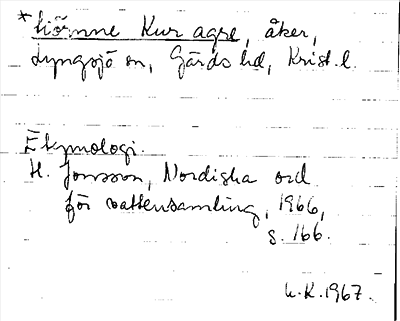 *tiörnne Kur agre, åker,
Lyngsjö sn, Gärds hd, Krist. l.
Etymologi.
H. Jonsson, Nordiska ord
för vattensamling, 1966,
s. 166.
L.K. 1967.